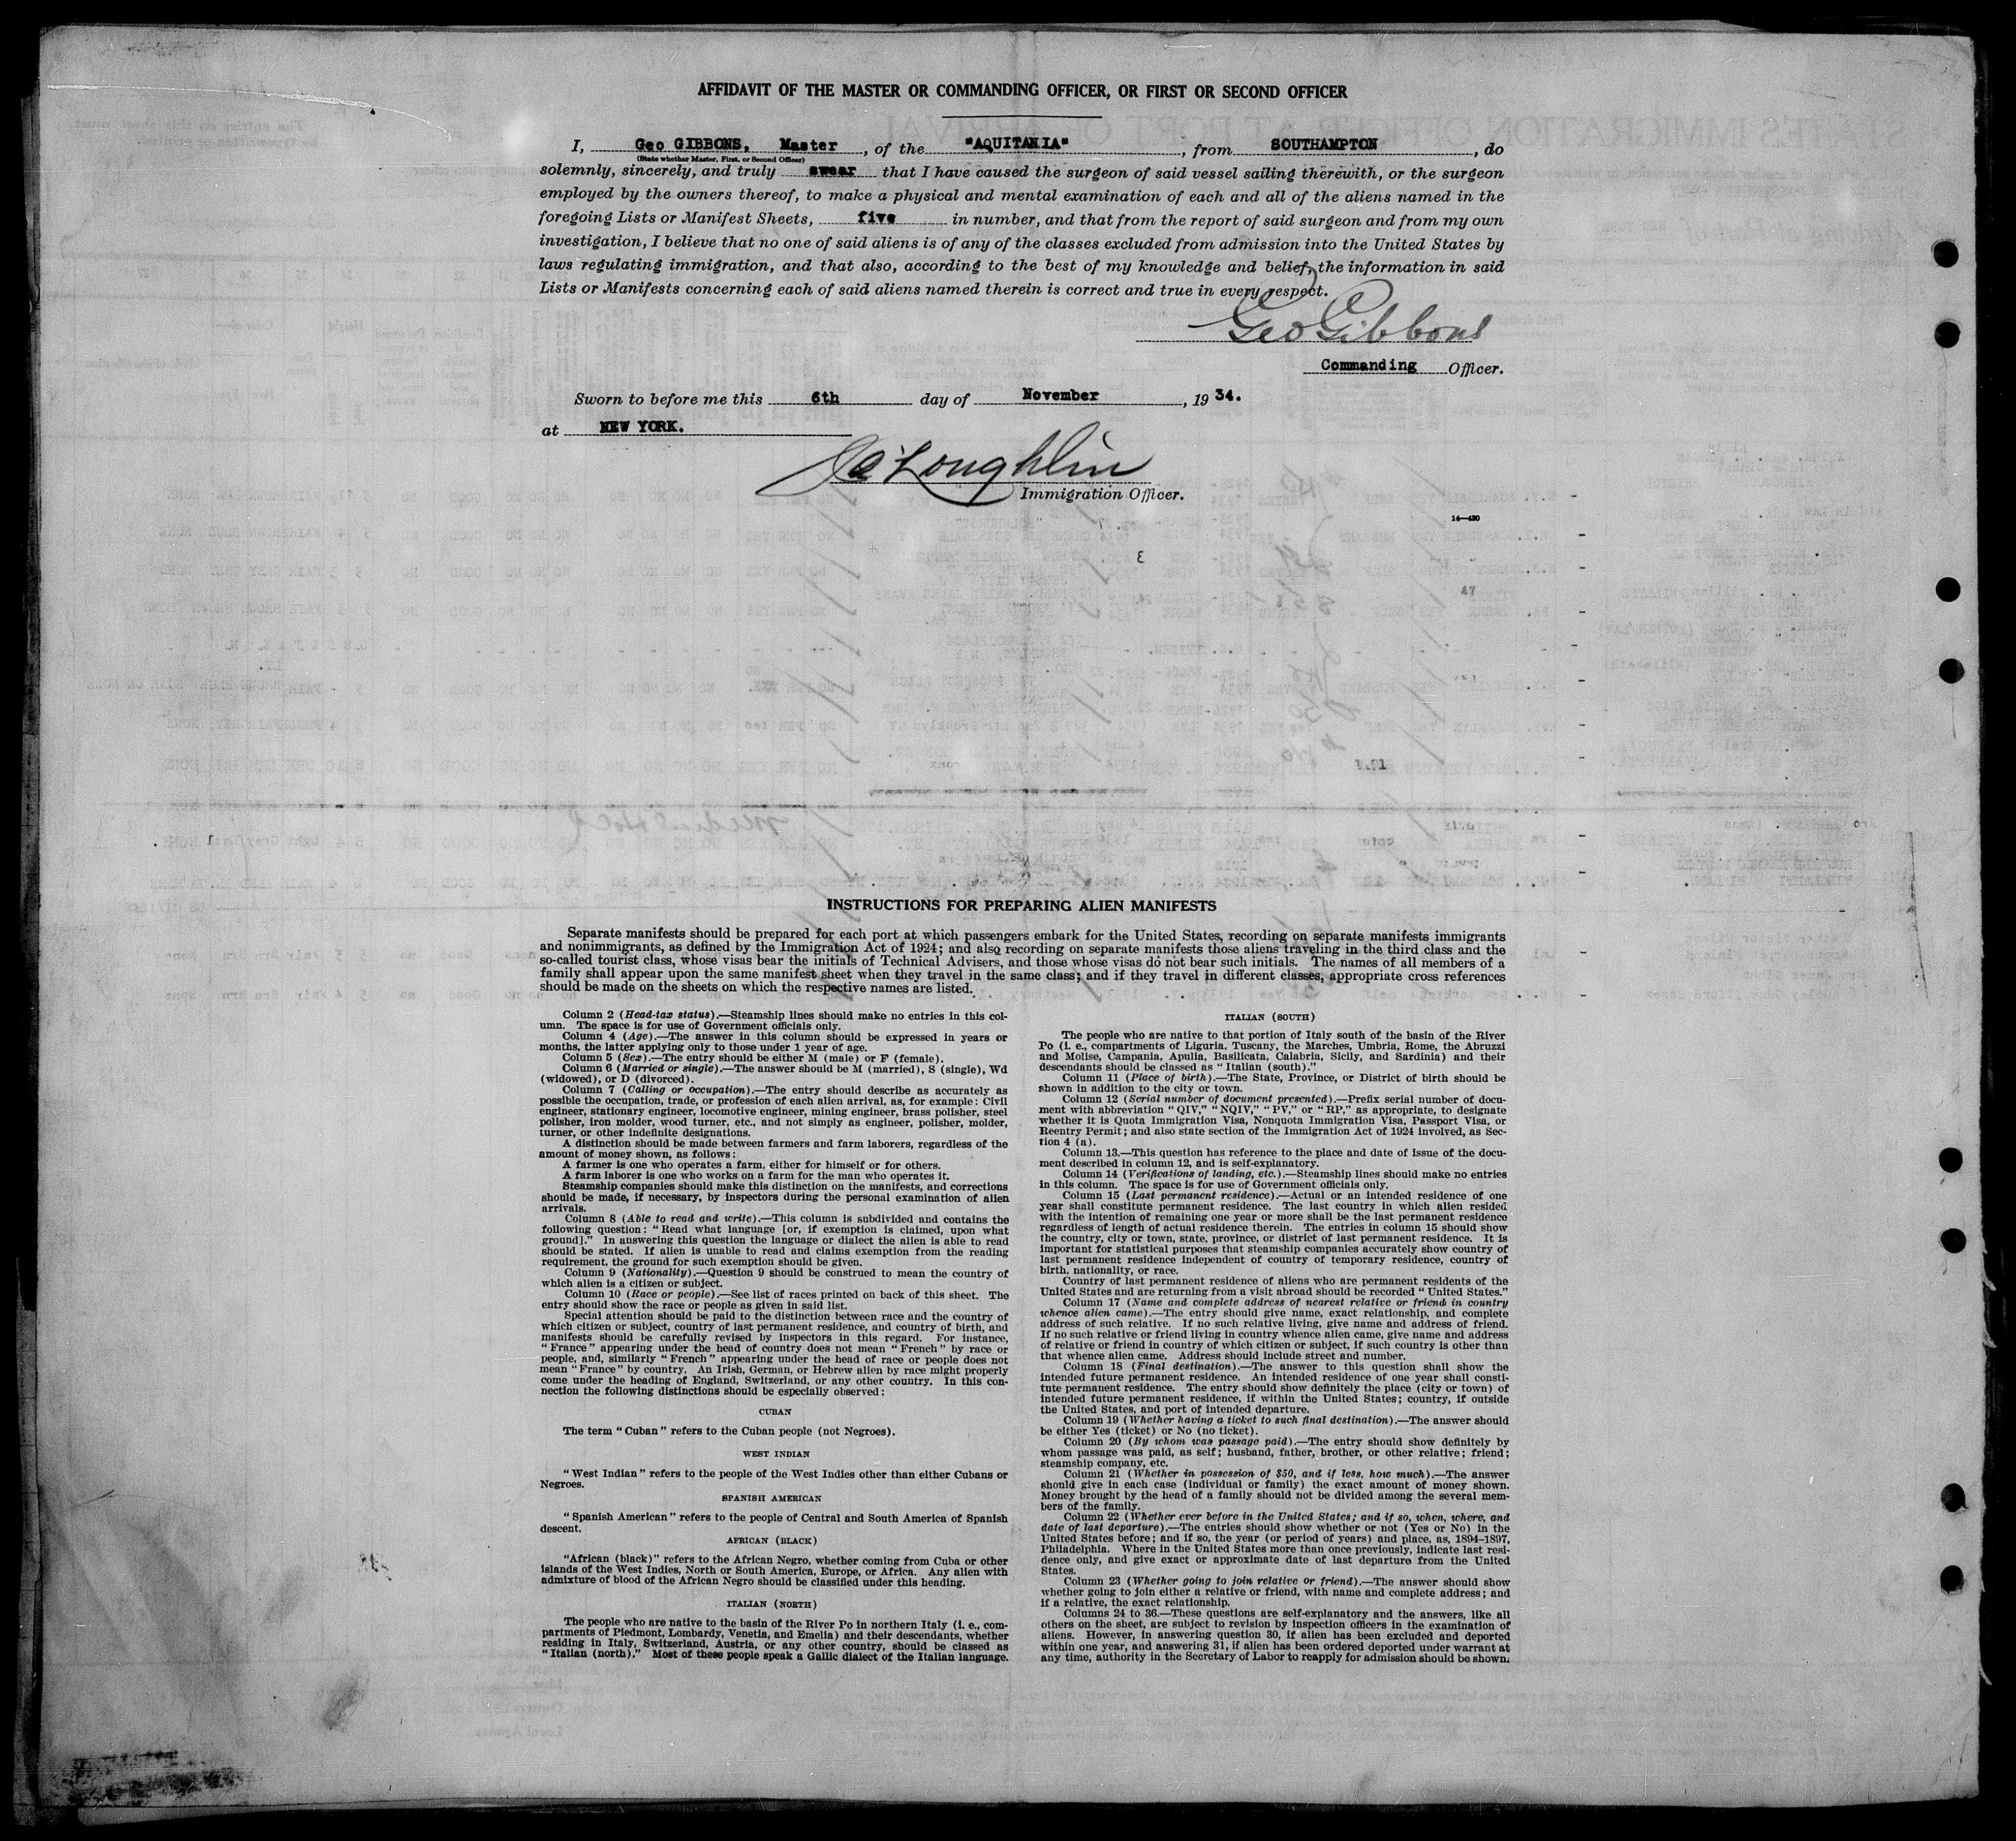 AFFIDAVIT OF THE MASTER OR COMMANDING OFFICER, OR FIRST OR SECOND OFFICER
I, Geo GIBBONS, Master, of the "AQUITANIA", from SOUTHAMPTON, do
(State whether Master, First, or Second Officer)
solemnly, sincerely, and truly swear that I have caused the surgeon of said vessel sailing therewith, or the surgeon
employed by the owners thereof, to make a physical and mental examination of each and all of the aliens named in the
foregoing Lists or Manifest Sheets, five in number, and that from the report of said surgeon and from my own
investigation, I believe that no one of said aliens is of any of the classes excluded from admission into the United States by
laws regulating immigration, and that also, according to the best of my knowledge and belief, the information in said
Lists or Manifests concerning each of said aliens named therein is correct and true in every respect.
Geo Gibbons
Commanding Officer.
Sworn to before me this 6th day of November, 1934.
at NEW YORK.
Immigration Officer.
14—430
INSTRUCTIONS FOR PREPARING ALIEN MANIFESTS
Separate manifests should be prepared for each port at which passengers embark for the United States, recording on separate manifests immigrants
and nonimmigrants, as defined by the Immigration Act of 1924; and also recording on separate manifests those aliens traveling in the third class and the
so-called tourist class, whose visas bear the initials of Technical Advisers, and those whose visas do not bear such initials. The names of all members of a
family shall appear upon the same manifest sheet when they travel in the same class; and if they travel in different classes, appropriate cross references
should be made on the sheets on which the respective names are listed.
Column 2 (Head-tax status).—Steamship lines should make no entries in this col-
umn. The space is for use of Government officials only.
Column 4 (Age).—The answer in this column should be expressed in years or
months, the latter applying only to those under 1 year of age.
Column 5 (Sex).—The entry should be either M (male) or F (female).
Column 6 (Married or single).—The answer should be M (married), S (single), Wd
(widowed), or D (divorced).
Column 7 (Calling or occupation).—The entry should describe as accurately as
possible the occupation, trade, or profession of each alien arrival, as, for example: Civil
engineer, stationary engineer, locomotive engineer, mining engineer, brass polisher, steel
polisher, iron molder, wood turner, etc., and not simply as engineer, polisher, molder,
turner, or other indefinite designations.
A distinction should be made between farmers and farm laborers, regardless of the
amount of money shown, as follows:
A farmer is one who operates a farm, either for himself or for others.
A farm laborer is one who works on a farm for the man who operates it.
Steamship companies should make this distinction on the manifests, and corrections
should be made, if necessary, by inspectors during the personal examination of alien
arrivals.
Column 8 (Able to read and write).—This column is subdivided and contains the
following question: "Read what language [or, if exemption is claimed, upon what
ground]." In answering this question the language or dialect the alien is able to read
should be stated. If alien is unable to read and claims exemption from the reading
requirement, the ground for such exemption should be given.
Column 9 (Nationality).—Question 9 should be construed to mean the country of
which alien is a citizen or subject.
Column 10 (Race or people).—See list of races printed on back of this sheet. The
entry should show the race or people as given in said list.
Special attention should be paid to the distinction between race and the country of
which citizen or subject, country of last permanent residence, and country of birth, and
manifests should be carefully revised by inspectors in this regard. For instance,
"France" appearing under the head of country does not mean "French" by race or
people, and, similarly "French" appearing under the head of race or people does not
mean "France" by country. An Irish, German, or Hebrew alien by race might properly
come under the heading of England, Switzerland, or any other country. In this con-
nection the following distinctions should be especially observed:
CUBAN
The term "Cuban" refers to the Cuban people (not Negroes).
WEST INDIAN
"West Indian" refers to the people of the West Indies other than either Cubans or
Negroes.
SPANISH AMERICAN
"Spanish American" refers to the people of Central and South America of Spanish
descent.
AFRICAN (BLACK)
"African (black)" refers to the African Negro, whether coming from Cuba or other
islands of the West Indies, North or South America, Europe, or Africa. Any alien with
admixture of blood of the African Negro should be classified under this heading.
ITALIAN (NORTH)
The people who are native to the basin of the River Po in northern Italy (i. e., com-
partments of Piedmont, Lombardy, Venetia, and Emelia) and their descendants, whether
residing in Italy, Switzerland, Austria, or any other country, should be classed as
"Italian (north)." Most of these people speak a Gallic dialect of the Italian language.
ITALIAN (SOUTH)
The people who are native to that portion of Italy south of the basin of the River
Po (i. e., compartments of Liguria, Tuscany, the Marches, Umbria, Rome, the Abruzzi
and Molise, Campania, Apulia, Basilicata, Calabria, Sicily, and Sardinia) and their
descendants should be classed as "Italian (south)."
Column 11 (Place of birth).—The State, Province, or District of birth should be
shown in addition to the city or town.
Column 12 (Serial number of document presented).—Prefix serial number of docu-
ment with abbreviation "QIV," "NQIV," "PV," or "RP," as appropriate, to designate
whether it is Quota Immigration Visa, Nonquota Immigration Visa, Passport Visa, or
Reentry Permit; and also state section of the Immigration Act of 1924 involved, as Sec-
tion 4 (a).
Column 13.—This question has reference to the place and date of issue of the docu-
ment described in column 12, and is self-explanatory.
Column 14 (Verifications of landing, etc.).—Steamship lines should make no entries
in this column. The space is for use of Government officials only.
Column 15 (Last permanent residence).—Actual or an intended residence of one
year shall constitute permanent residence. The last country in which alien resided
with the intention of remaining one year or more shall be the last permanent residence
regardless of length of actual residence therein. The entries in column 15 should show
the country, city or town, state, province, or district of last permanent residence. It is
important for statistical purposes that steamship companies accurately show country of
last permanent residence independent of country of temporary residence, country of
birth, nationality, or race.
Country of last permanent residence of aliens who are permanent residents of the
United States and are returning from a visit abroad should be recorded "United States."
Column 17 (Name and complete address of nearest relative or friend in country
whence alien came).—The entry should give name, exact relationship, and complete
address of such relative. If no such relative living, give name and address of friend.
If no such relative or friend living in country whence alien came, give name and address
of relative or friend in country of which citizen or subject, if such country is other than
that whence alien came. Address should include street and number.
Column 18 (Final destination).—The answer to this question shall show the
intended future permanent residence. An intended residence of one year shall consti-
tute permanent residence. The entry should show definitely the place (city or town) of
intended future permanent residence, if within the United States; country, if outside
the United States, and port of intended departure.
Column 19 (Whether having a ticket to such final destination).—The answer should
be either Yes (ticket) or No (no ticket).
Column 20 (By whom was passage paid).—The entry should show definitely by
whom passage was paid, as self; husband, father, brother, or other relative; friend;
steamship company, etc.
Column 21 (Whether in possession of $50, and if less, how much).—The answer
should give in each case (individual or family) the exact amount of money shown.
Money brought by the head of a family should not be divided among the several mem-
bers of the family.
Column 22 (Whether ever before in the United States; and if so, when, where, and
date of last departure).—The entries should show whether or not (Yes or No) in the
United States before; and if so, the year (or period of years) and place, as, 1894-1897,
Philadelphia. Where in the United States more than once previously, indicate last resi-
dence only, and give exact or approximate date of last departure from the United
States.
Column 23 (Whether going to join relative or friend).—The answer should show
whether going to join either a relative or friend, with name and complete address; and
if a relative, the exact relationship.
Columns 24 to 36.—These questions are self-explanatory and the answers, like all
others on the sheet, are subject to revision by inspection officers in the examination of
aliens. However, in answering question 30, if alien has been excluded and deported
within one year, and answering 31, if alien has been ordered deported under warrant at
any time, authority in the Secretary of Labor to reapply for admission should be shown.